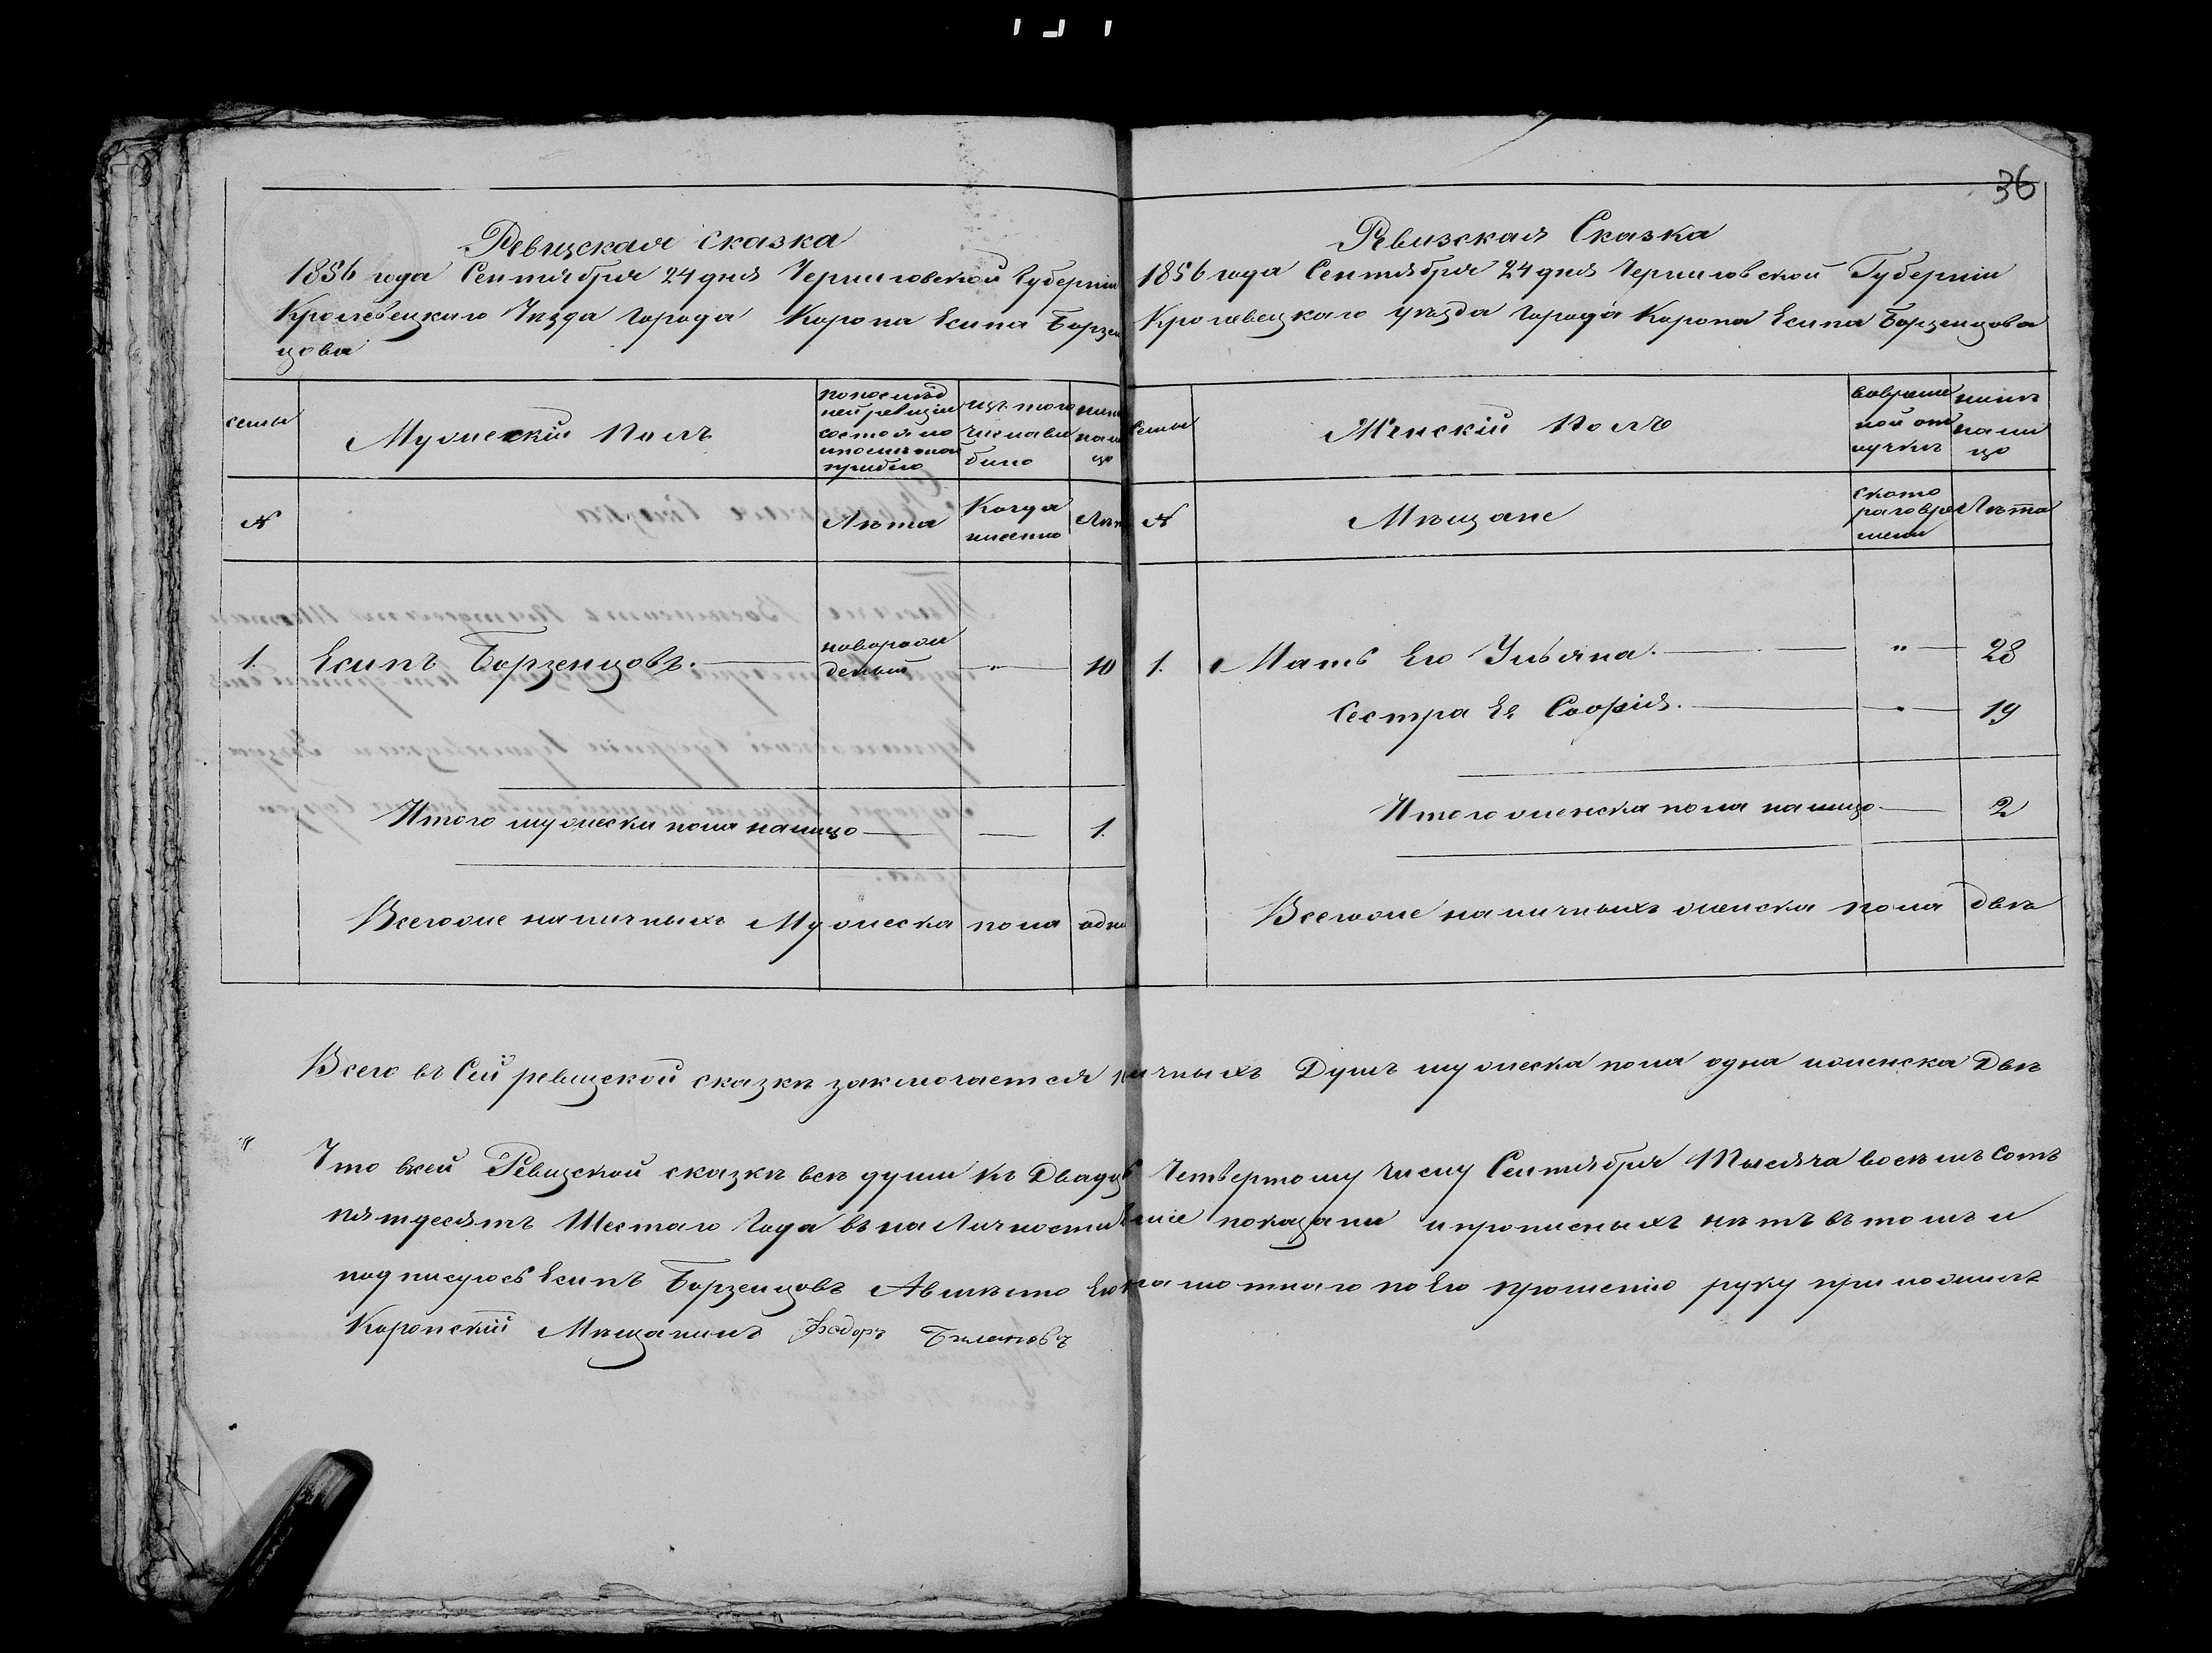 36
Ревизская сказка
1856 года Сентября 24 дня Черниговской Губерніи
Кролевецкаго Уезда Города Коропа Есипа Борзен
цова
семьи
Мужескій полъ
попослед
ней ревизіи
состояло
ипослетого
прибыло
изъ того
числа вы
было
ныне
нали
цо
№
Лета
Когда
именно
Лет
1.
Есипъ Борзенцовъ.
новорож
деный
"
10
Итого мужеска пола налицо
1.
Всегоже наличныхъ Мужеска пола одна
Ревизская Сказка
1856 года Сентября 24 дня Черниговской Губерніи
Кролевецкаго уезда Города Коропа Есипа Борзенцова
Семьи
Женскій полъ
вовремен
ной от
лучке
ныне
нали
цо
№
Мещане
с кото
раго вре
мени
Лета
1.
Мать Его Ульяна.
"
28
Сестра Ее Софія.
"
19
Итого женска пола налицо
2
Всегоже наличныхъ женска пола две
Всего въ Сей ревизской сказке заключается личныхъ Душъ мужеска пола одна иженска Две
"
Что всей Ревизской сказке все души къ Двадц Четвертому числу Сентября Тысяча восемъ Сотъ
пятдесятъ Шестаго Года въ на Личности показаны ипрописныхъ нетъ въ томъ и
подписуюсь Есипъ Борзенцовъ Авместо Его по Его прошенію руку приложилъ
Коропскій Мещанинъ Федоръ